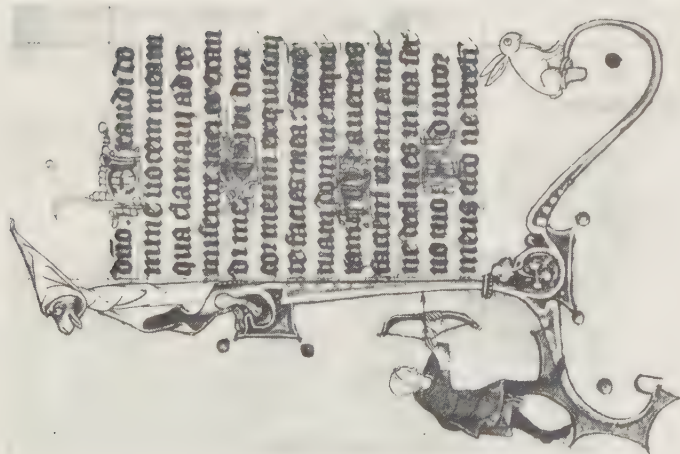 dño. Exaudi do
mine uocem meam
qua clamaui ad te
miserere mei et exau
di me. Tibi dixit
cor meum exquisiuit
te facies mea: faciē
tuam domine requi
ram Ne auertas
faciem tuam a me
ne declines in ira
uo tuo Adiutor
meus esto ne dereli